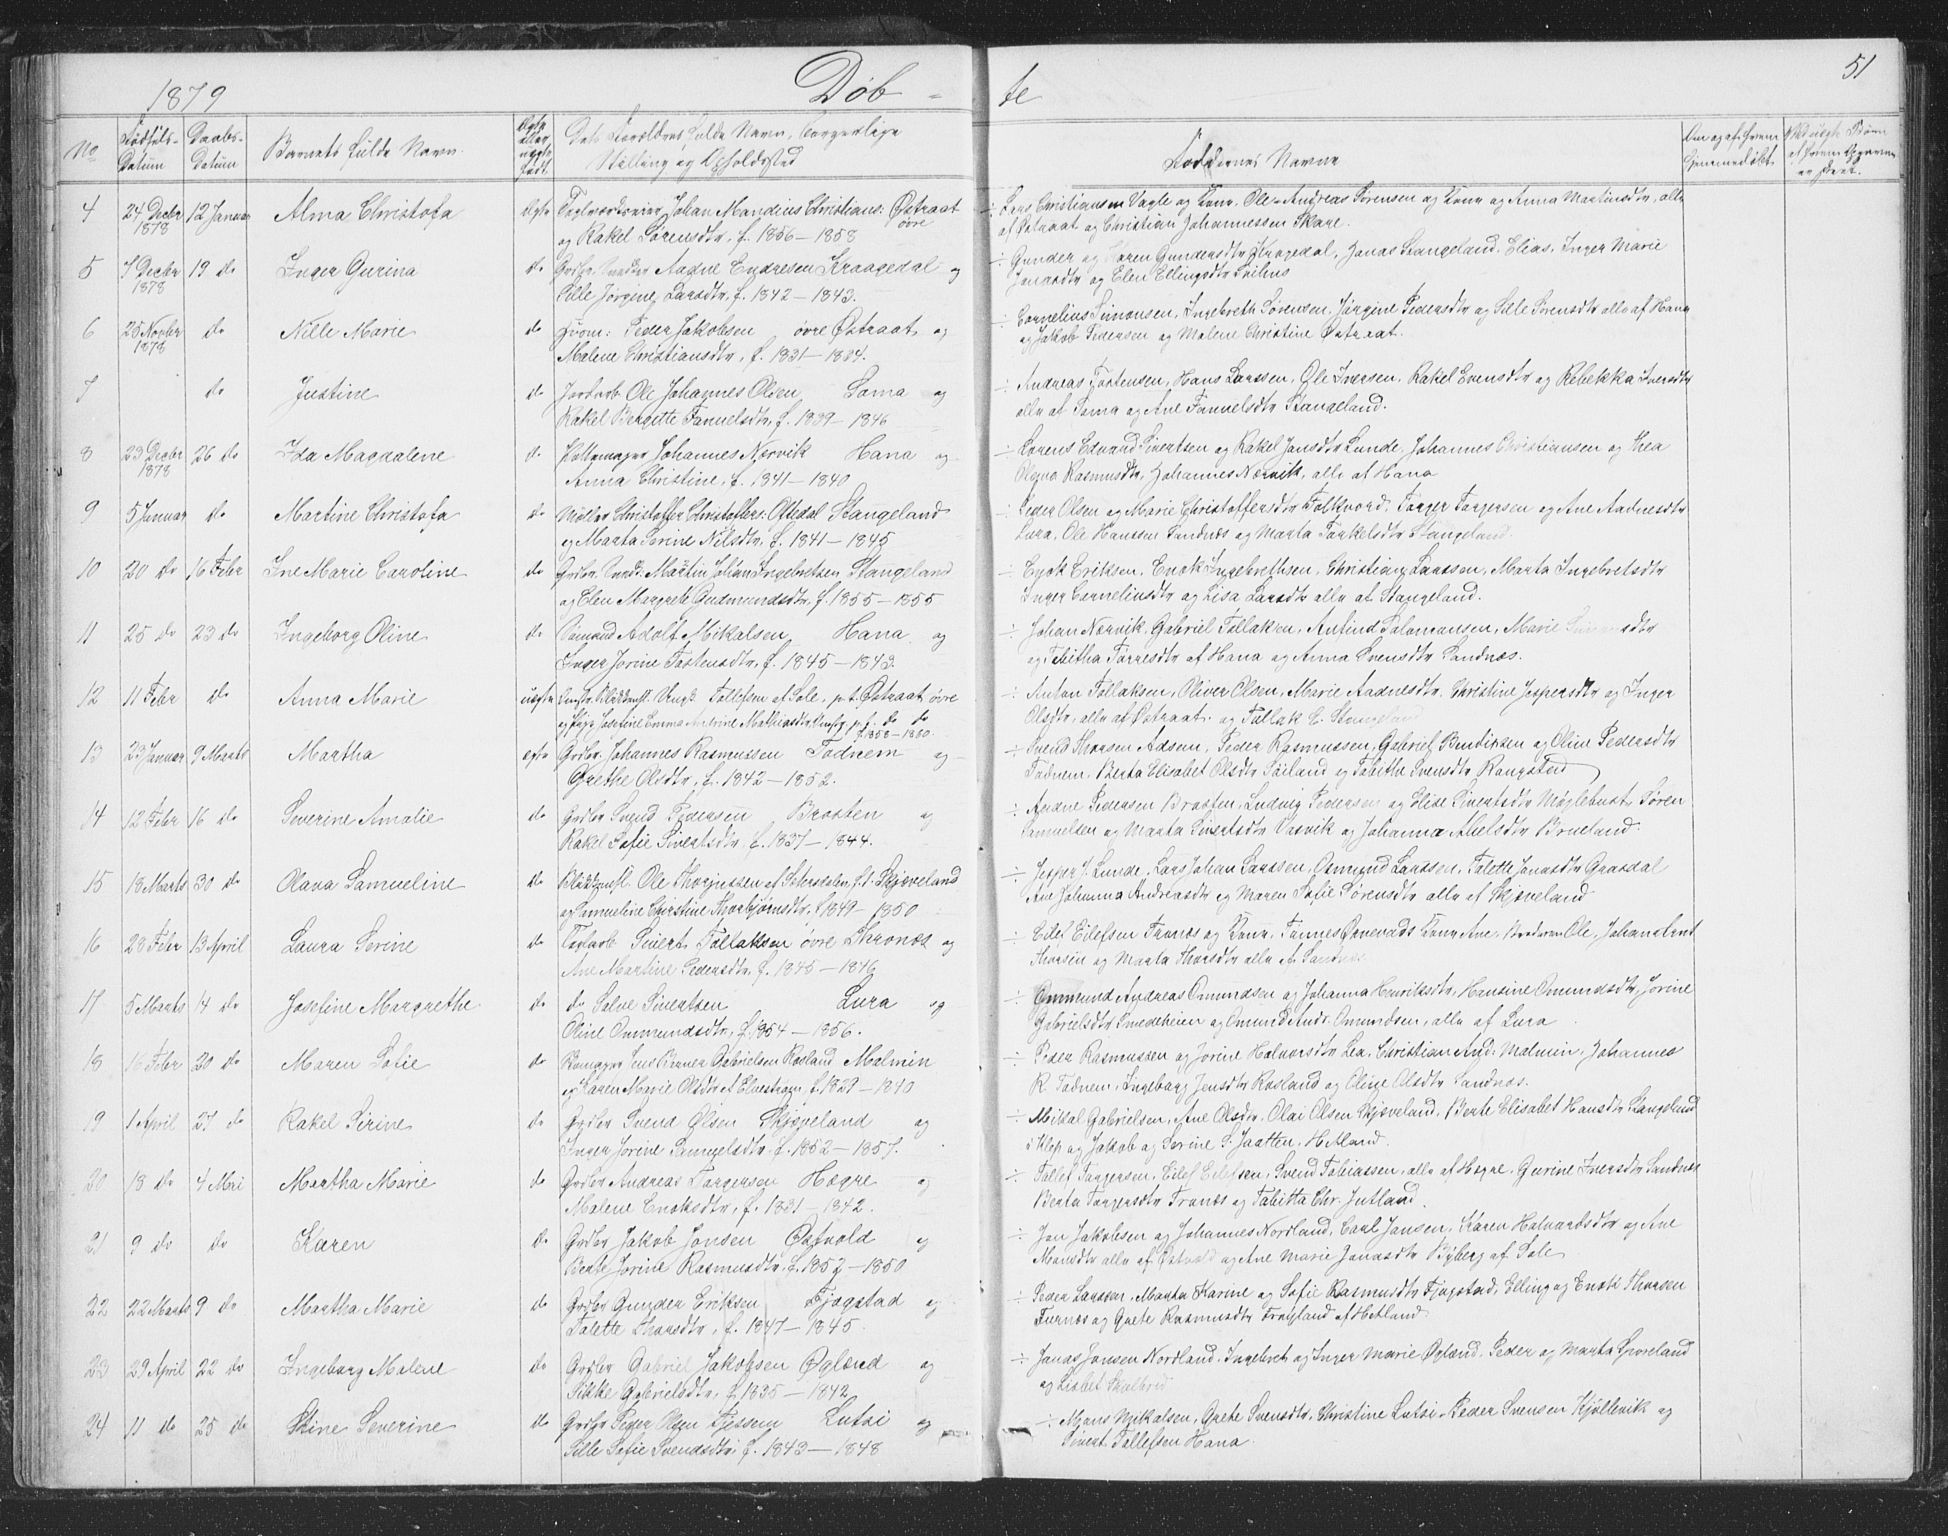 1879 Døb - te 51
No Fødsels-Datum Daabs-Datum Barnets fulde Navn Ægte eller uægte født Dets Forældres fulde Navn, borgerlige Stilling og Opholdssted Faddernes Navne
4 24 Decbr 1878 12 Januar Alma Christofa Ægte Johan Mandius Christians. Østraat øvre
og Rakel Sørensdtr, f. 1856 - 1858
÷ Lars Christiansen Vagle og Kone, Ole Andreas Sørensen og Kone og Anna Martinsdtr, alle
af Østraat og Christian Johannessen Skare.
5 Decbr 1878 19 do Inger Gurina do Aadne Endresen Kraagedal og
Sille Jørgine Larsdtr, f. 1842 - 1843.
÷ Gunder og Karen Gundersdtr Kraagedal, Jonas Stangeland, Elias, Inger Marie
Jonasdtr og Elen Ellingsdtr
6 25 Novbr 1878 do Nille Marie do Huom: Peder Jakobsen øvre Østraat og
Malene Christiansdtr, f. 1831 - 1834.
÷ Cornelius Simonsen, Ingebreth Sørensen, Jørgine Pedersdtr og Sille Sørensdtr alle af Hana
og Jakob Pedersen og Malene Christine Østraat.
7 do Justine do Ole Johannes Olsen Soma og
Rakel Bergitte Tønnelsdtr, f. 1839 - 1846
÷ Andreas Tostensen, Hans Larssen, Ole Iversen, Rakel Evensdtr og Rebekka Iversdtr
alle af Soma og Ane Tønnelsdtr Stangeland.
8 23 Decbr 1878 26 do Ida Magdalene do Pottemager Johannes Nørvik Hana og
Anna Christine, f. 1841 - 1840
÷ Lorens Edvard Sivertsen og Rakel Jansdtr Lunde, Johannes Christiansen og Thea
Olegna Rasmusdtr, Johannes Nørvik, alle af Hana
9 5 Januar do Martine Christofa do Møller Christoffer Christoffers: Ottedal Stangeland
og Marta Serine Nilsdtr, f. 1841 - 1845
÷ Peder Olsen og Marie Christoffersdtr Folkvord, Torger Torgersen og Ane Aadnesdtr
Lura, Ole Hanssen Sandnæs og Marta Torkelsdtr Stangeland.
10 20 do 16 Febr Ine Marie Caroline do Martin Johan Ingebretsen Stangeland
og Elen Margrete Gudmundsdtr, f. 1855 - 1855
÷ Enok Eriksen, Enok Ingebrethsen, Christian Larssen, Marta Ingebretsdtr
Inger Corneliusdtr og Lisa Larsdtr alle af Stangeland.
11 25 do 23 do Ingeborg Oline do Sømand Adolf Mikalsen Hana og
Inger Jorine Tostensdtr, f. 1845 - 1843.
÷ Johan Nørvik, Gabriel Tollaksen, Antind Salomonsen, Marie
og Tabitha Torresdtr af Hana og Anna Svensdtr Sandnæs.
12 11 Febr do Anna Marie uægte Tollefsen af Sole, p.t. Østraat øvre
og Pige Josefine Emma Andrine Mathiasdtr p.t. do do f. 1858 - 1860.
÷ Anton Tollaksen, Oliver Olsen, Marie Aadnesdtr, Christine Jespersdtr og Inger
Olsdtr, alle af Østraat og Tollak E. Stangeland
13 23 Januar 9 Marts Martha egte Grdbr. Johannes Rasmussen Todnem og
Grethe Olsdtr, f. 1842 - 1852.
÷ Svend Thorsen Adsen, Peder Rasmussen, Gabriel Bendixen og Oline Pedersdtr
Todnem, Berta Elisabet Olsdtr Søiland og Tabithe Svensdtr Rangstad
14 12 Febr 16 do Severine Amalie do Grdbr Svend Pedersen Brasten og
Rakel Sofie Sivertsdtr, f. 1837 - 1844.
÷ Aadne Pedersen Brasten, Ludvig Pedersen og Elise Sivertsdtr Møglebust, Søren
Samuelsen og Marta Sivertsdtr Vasvik og Johanna Abelsdtr Brueland.
15 18 Marts 30 do Olava Samueline do Ole Thorjussen af p.t. Skjæveland
og Samueline Christine Thorbjørnsdtr, f. 1849 - 1850
÷ Jesper J. Lunde, Lars Johan Larssen, Osmund Larssen, Talette Jonasdtr Graasdal
Ane Johanna Andreasdtr og Maren Sofie Sørensdtr alle af Skjæveland
16 28 Febr 13 April Laura Serine do Sivert Tollaksen øvre Skrones og
Ane Martine Pedersdtr, f. 1845 - 1846.
÷ Eilef Eilefsen Tronæs og Kone, Ane, Broderen Ole, Johan
Thorsen og Marta Thorsdtr alle af Sandnæs
17 5 Marts 14 do Josefine Margrethe do do Salve Sivertsen Lura og
Oline Ommundsdtr, f. 1854 - 1856.
÷ Ommund Andreas Omundsen og Johanna Henriksdtr, Hansine Omundsdtr, Jorine
Gabrielsdtr Smedeheien og Omund Andr. Omundsen, alle af Lura
18 16 Febr 20 do Maren Sofie do Jens Berner Gabrielsen Rosland Malmin
og Karen Marie Olsdtr af Elvestrøm, f. 1829 - 1840
÷ Peder Rasmussen og Jorine Halvorsdtr Lea, Christian And. Malmin, Johannes
R. Todnem, Ingeborg Jensdtr Rosland og Oline Olsdtr Sandnæs.
19 1 April 27 do Rakel Sirine do Grdbr Svend Olsen Skjæveland og
Inger Jorine Samuelsdtr, f. 1852 - 1857.
÷ Mikal Gabrielsen, Ane Olsdtr, Olai Olsen Skjæveland, Berte Elisabet Hansdtr Stangeland
i Klep og Jakob og Serine S. Jaatten, Hetland.
20 18 do 4 Mai Martha Marie do Grdbr Andreas Torgersen Høgre og
Malene Enoksdtr, f. 1831 - 1842.
÷ Tollef Torgersen, Eilef Eilefsen, Svend Tobiassen, alle af Høgre, Gurine Iversdtr Sandnæs
Berta Torgersdtr Tronæs og Tabitta Chr. Jutland.
21 9 do do Karen do Grdbr Jakob Jonsen Østvold og
Berte Jorine Rasmusdtr, f. 1852 - 1850
÷ Jon Jakobsen og Johannes Nordland, Carl Jansen, Karen Halvardsdtr og Ane
Monsdtr alle af Østvold og Ane Marie Jonasdtr Byberg af Sole
22 22 Marts 9 do Martha Marie do Grdbr Gunder Eriksen Fjogstad og
Talette Thorsdtr, f. 1847 - 1845.
÷ Peder Larssen, Marta Karine og Sofie Rasmusdtr Fjogstad, Elling og Enok Thorsen
Furnæs og Grete Rasmusdtr Frøyland af Hetland
23 29 April 22 do Ingeborg Malene do Grdbr Gabriel Jakobsen Øglænd og
Sikke Gabrielsdtr, f. 1835 - 1842
÷ Jonas Jonsen Nordland, Ingebret og Inger Marie Øglænd, Peder og Marta
og Lisbet
24 11 do 25 do Stine Severine do Grdbr Peder Olsen Fjessem Lutsi og
Sille Sofie Svendsdtr, f. 1843 - 1848
÷ Mons Mikalsen, Grete Svensdtr, Christine Lutsi, Peder Svensen Kjøllevik og
Sivert Tollefsen Hana.